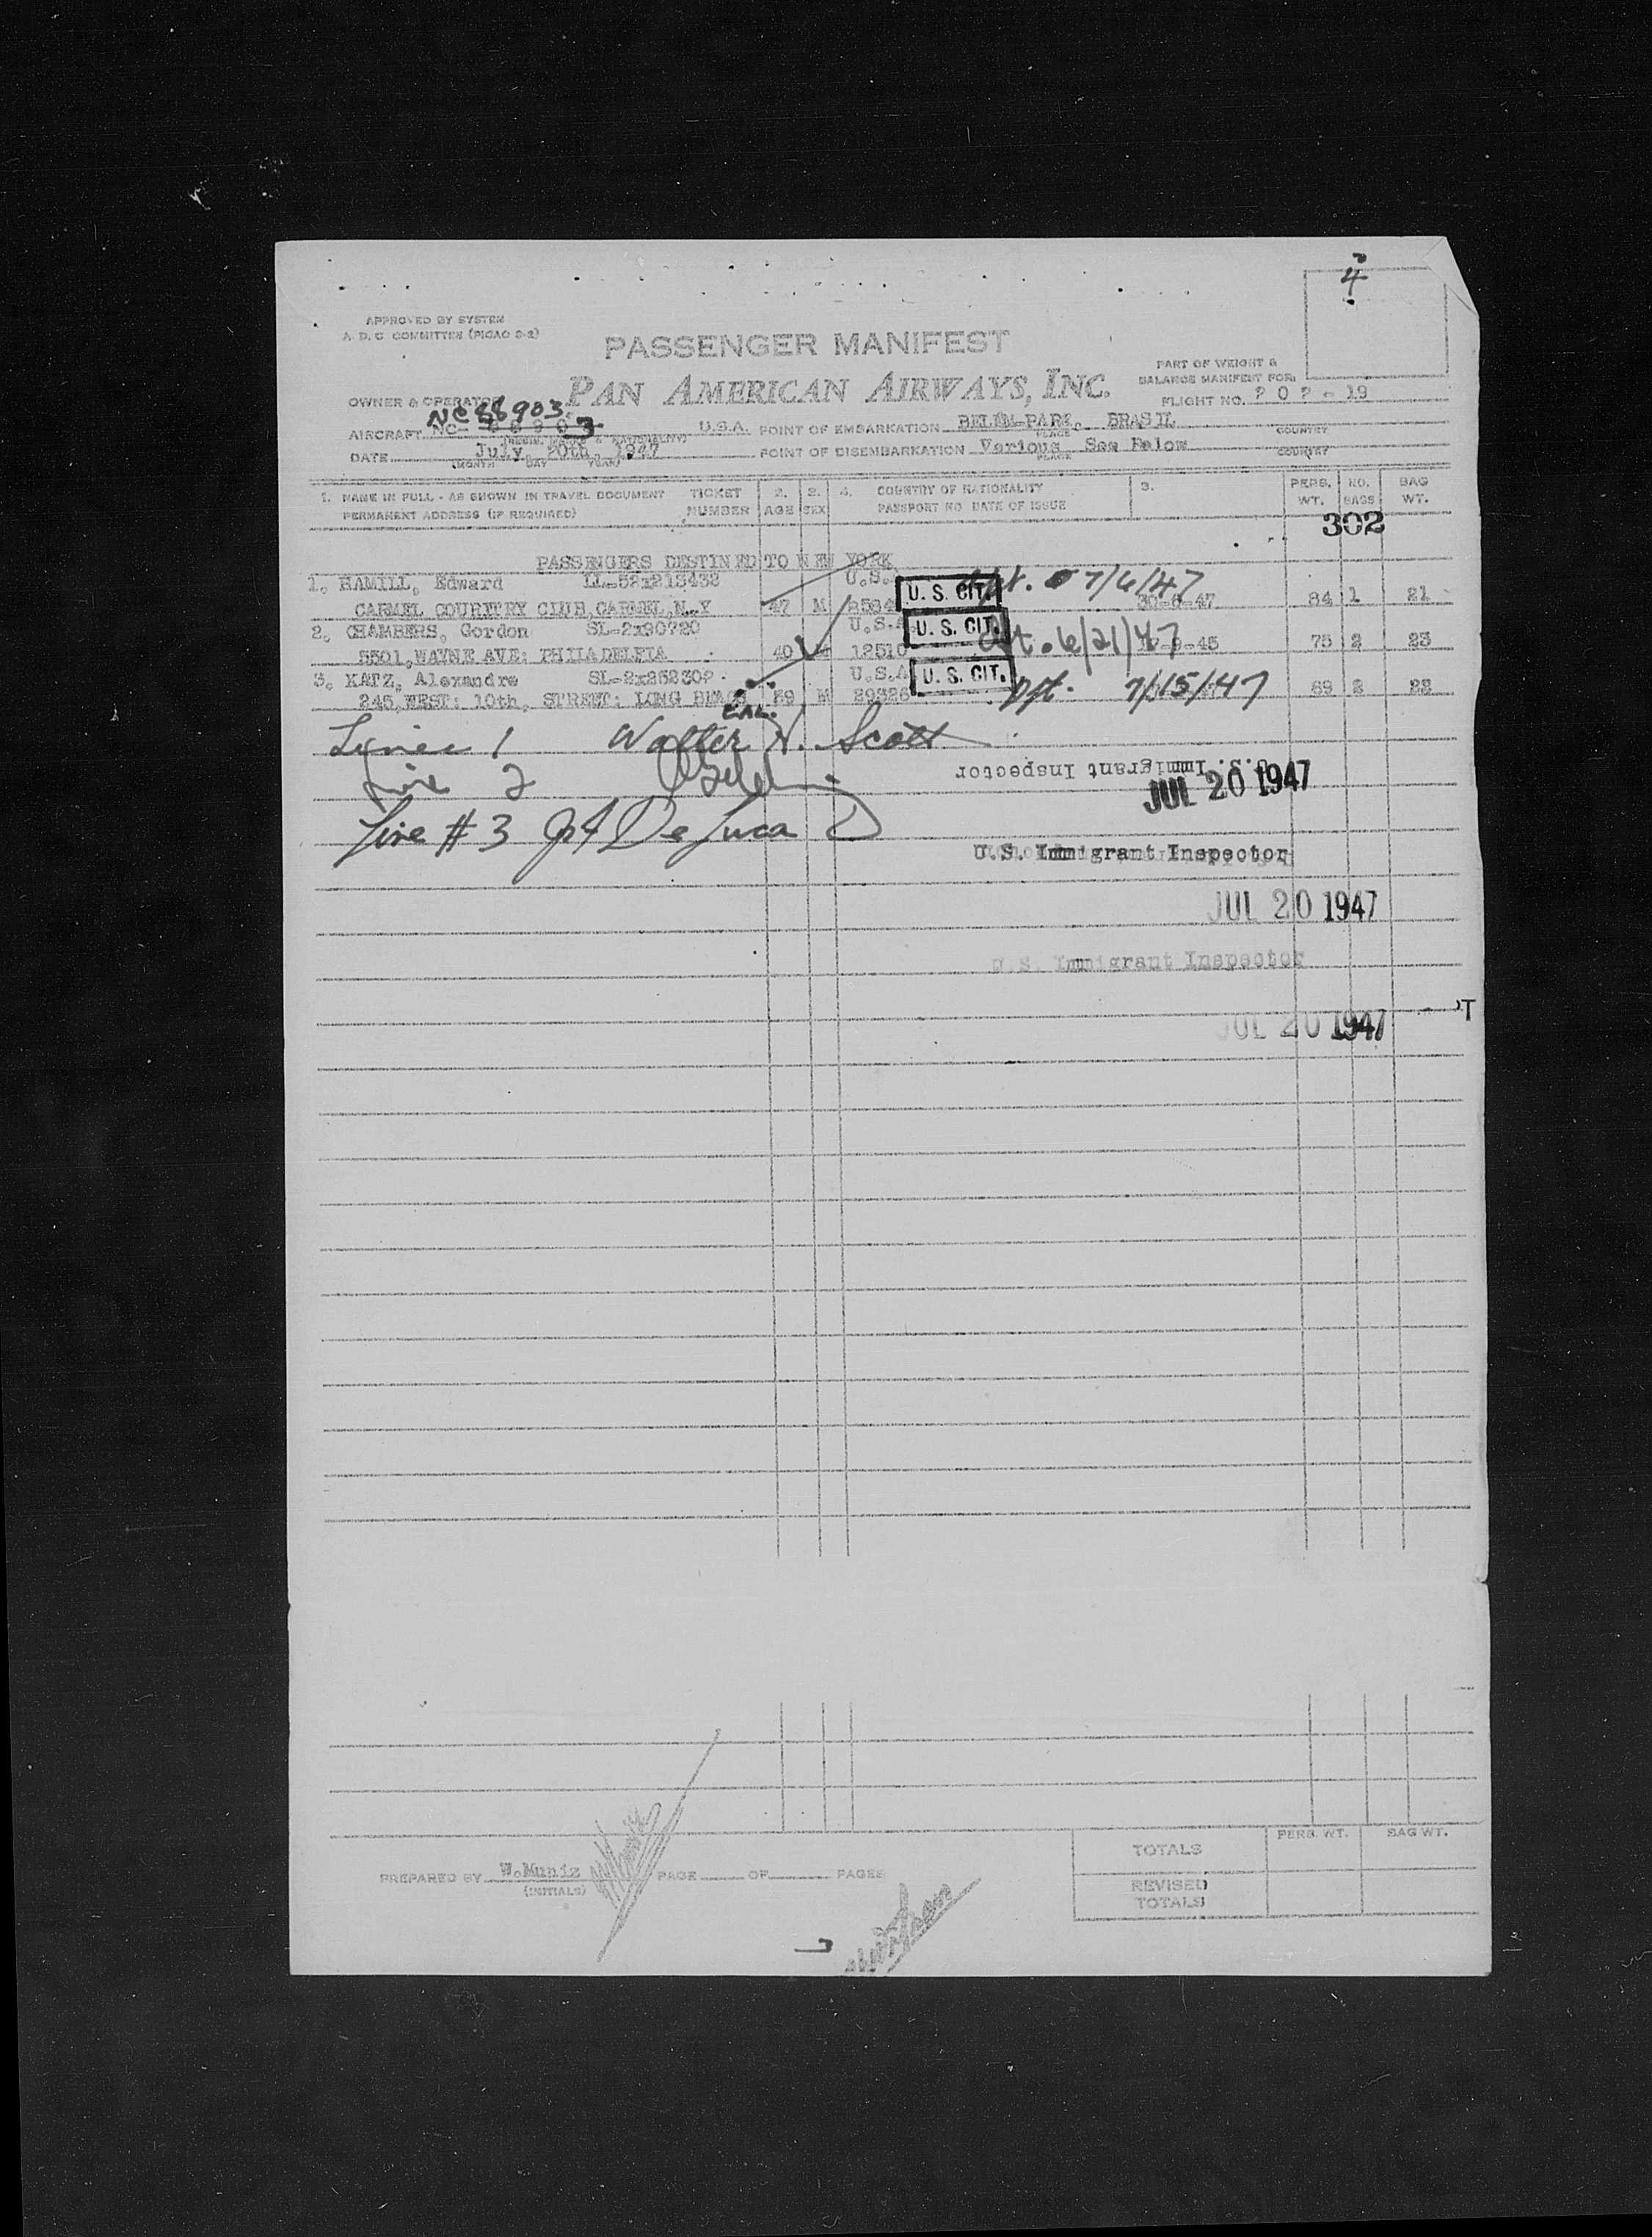 4
APPROVED BY SYSTEM
A. D. C. COMMITTEE (PICAO 9-2)
PASSENGER MANIFEST
PART OF WEIGHT &
BALANCE MANIFEST FOR:
OWNER & OPERATOR PAN AMERICAN AIRWAYS, INC.
FLIGHT NO. 202-19
NC 88903
AIRCRAFT NC- U.S.A. POINT OF EMBARKATION BELEM-PARA, BRASIL
PLACE COUNTRY
DATE July, 20th, 1947 POINT OF DISEMBARKATION Various See Below
(MONTH DAY YEAR) PLACE COUNTRY
1. NAME IN FULL - AS SHOWN IN TRAVEL DOCUMENT TICKET 2. 3. 4. COUNTRY OF NATIONALITY 5. PERS. NO. BAG
PERMANENT ADDRESS (IF REQUIRED) NUMBER AGE SEX PASSPORT NO DATE OF ISSUE WT. BAGS WT.
302
PASSENGERS DESTINED TO NEW YORK
1, HAMILL, Edward LL-52x213432 U.S. U. S. CIT. 7/6/47
CARMEL COUNTRY CLUB, CARMEL, N.Y 47 M 84 1 21
2, CHAMBERS, Gordon SL-2x90720 U.S.A U. S. CIT. 6/21/47
5501, WAYNE AVE: PHILADELFIA 40 M 12510 75 2 23
3, KATZ, Alexandre SL-2x252302 U.S.A U. S. CIT. Dft. 7/15/47
245, WEST: 10th, STREET: LONG BEACH CAL. 39 M 29326 89 2 22
Lines 1 Walter N. Scott
U.S. Immigrant Inspector
Line 2
JUL 20 1947
Line # 3 De Luca
U.S. Immigrant Inspector
JUL 20 1947
U.S. Immigrant Inspector
JUL 20 1947
PERS. WT. BAG WT.
TOTALS
PREPARED BY W.Muniz PAGE OF PAGES
(INITIALS)
REVISED
TOTALS